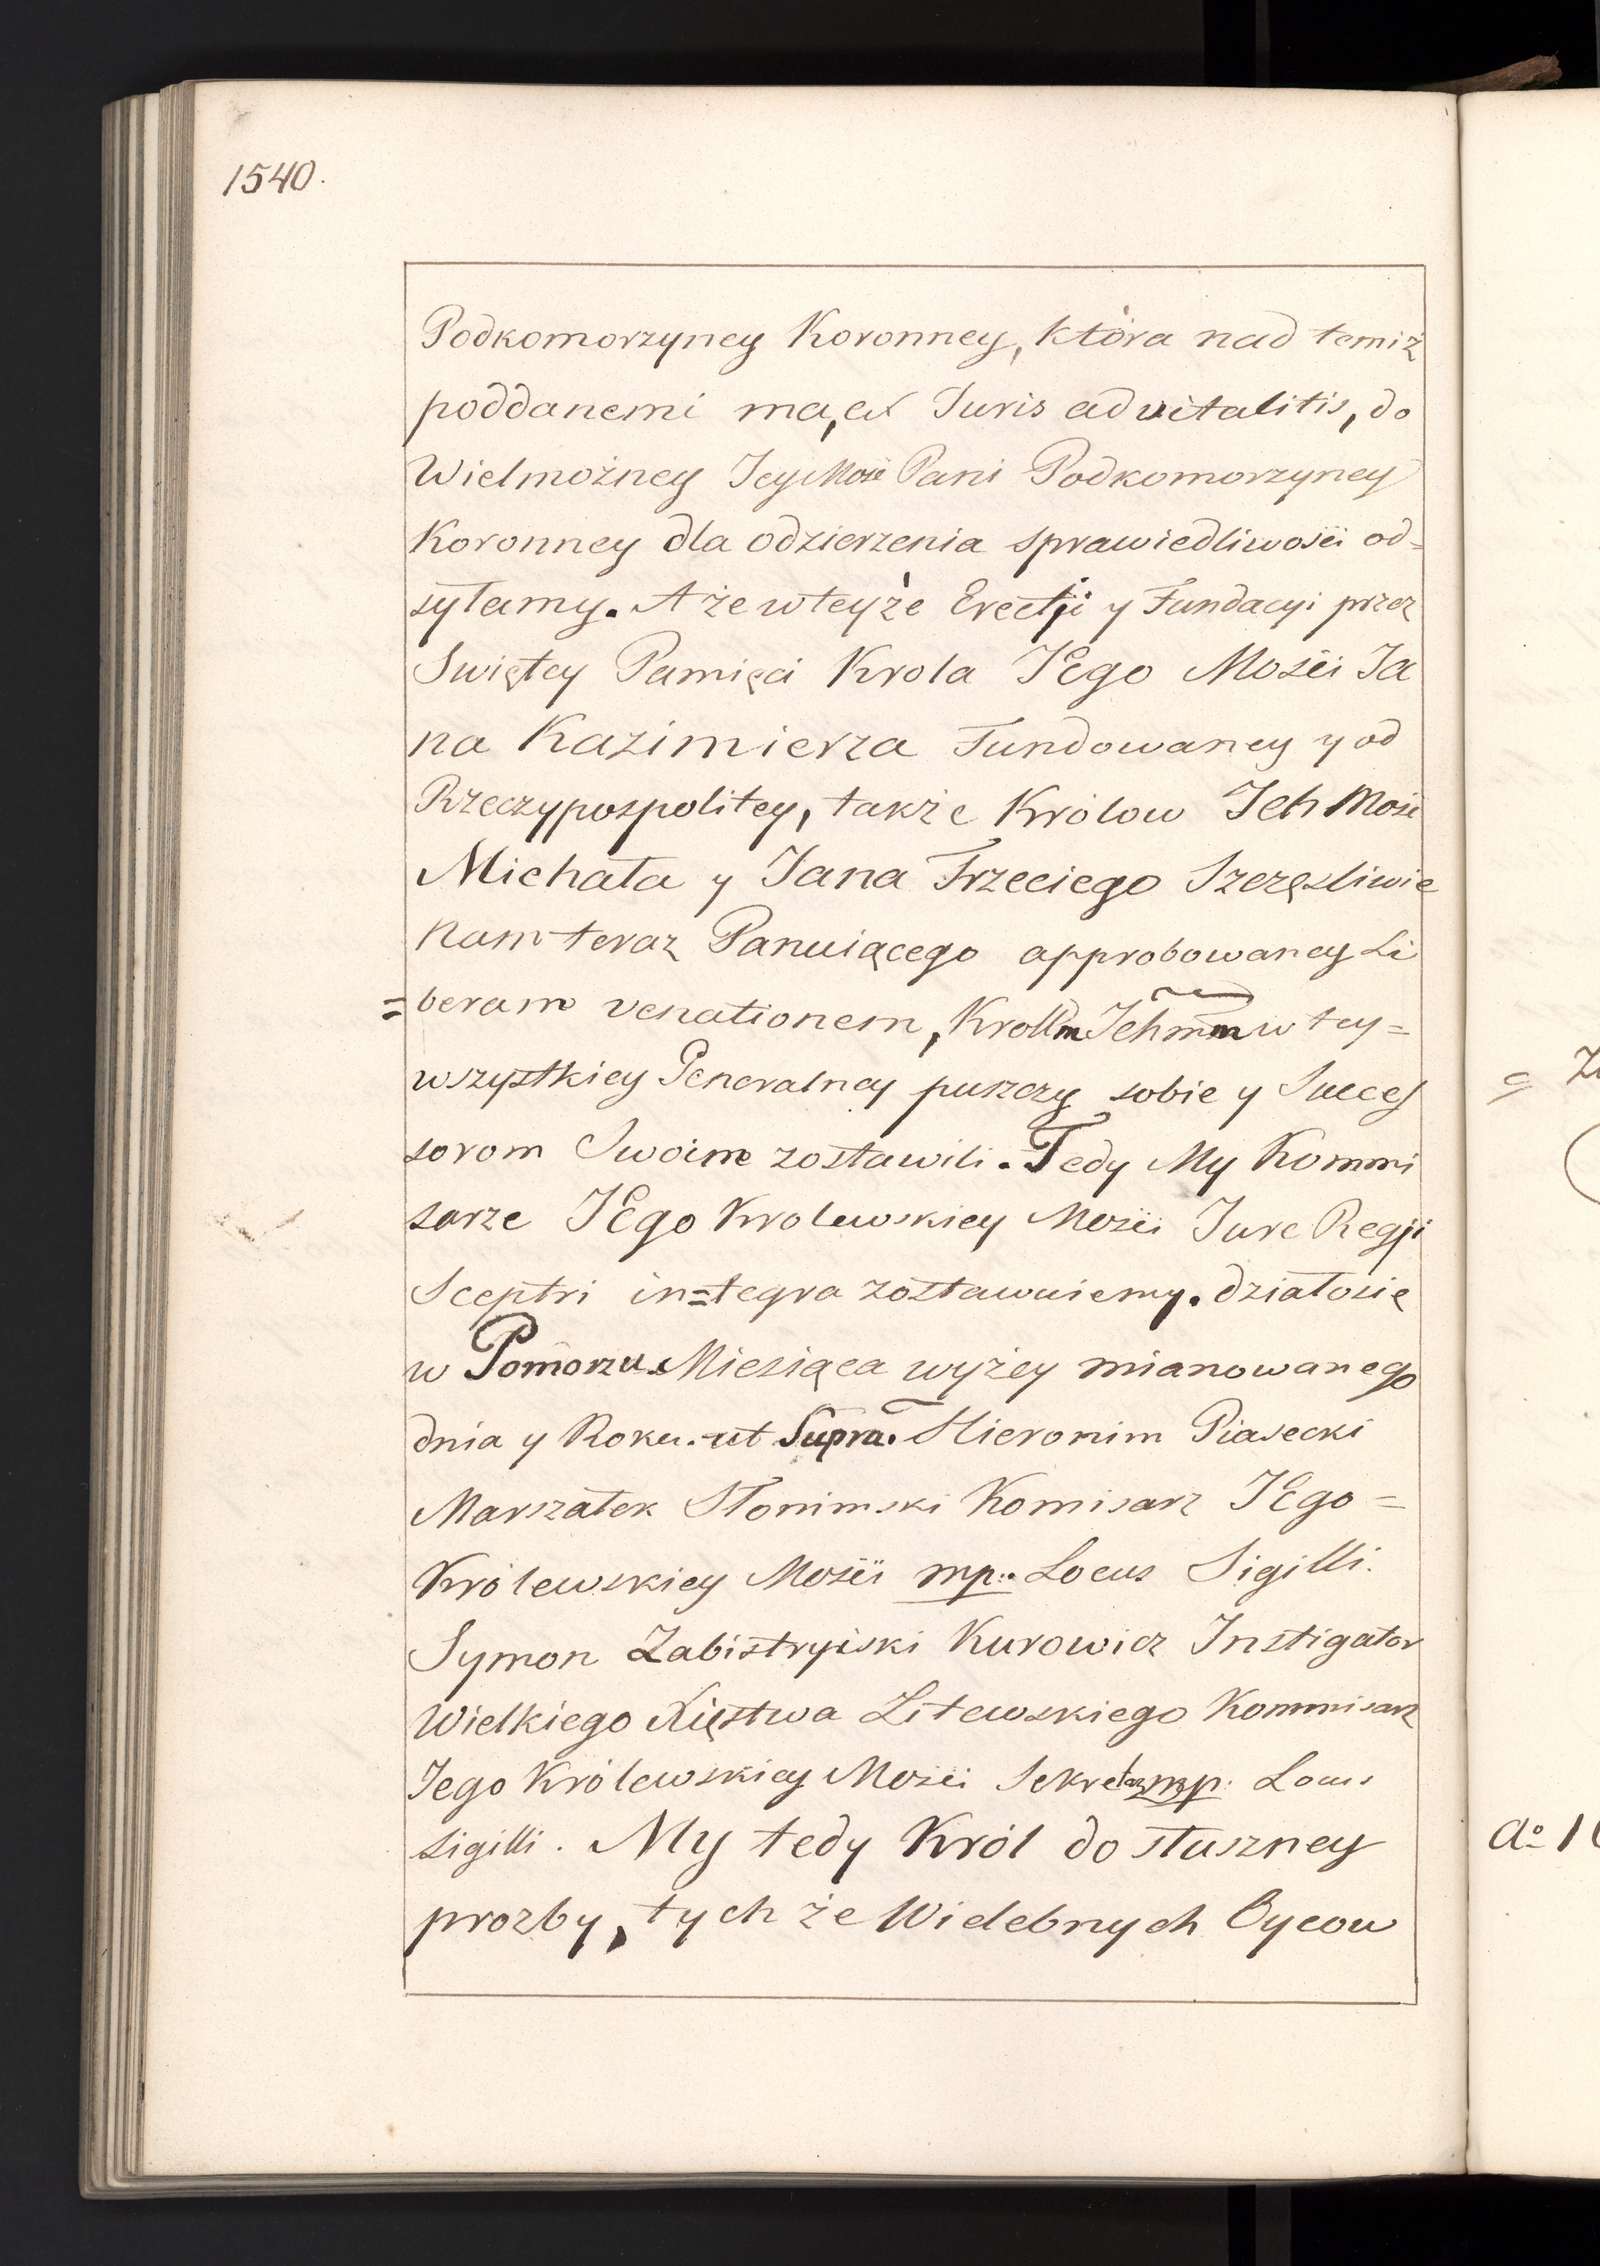 1540.
Podkomorzyney Koronney, która nad temiż
poddanemi ma, ex Juris advitalitis, do
Wielmożney Jey Mosci Pani Podkomorzyney
Koronney dla odzierzenia sprawiedliwości od=
syłamy. A że w teyże Erectji y Fundacyi przez
Swiętey Pamięci Krola JEgo Mości Ja
na Kazimierza Fundowaney y od
Rzeczypospolitey, także Królow Ich Mość
Michała y Jana Trzeciego Szczęsliwie
Nam teraz Panuiącego approbowaney Li
=beram venationem, w tey=
wszystkiey Generalney puszczy sobie y Succes
sorom Swoim zostawili. Tedy My Kommi
sarze JEgo Krolewskiey Mości Jure Regji
Sceptri in=tegra zostawuiemy. działosię
w Pomorzu Miesiąca wyżey mianowanego
dnia y Roku. ut Supra. Hieronim Piasecki
Marszałek Słonimski Komisarz JEgo=
Królewskiey Mości mp. Locus Sigilli.
Symon Zabistryiski Kurowicz Instigator
Wielkiego Xięstwa Litewskiego Kommisarz
Jego Królewskiey Mości Sekretarz mp. Locus
Sigilli. My tedy Król do słuszney
prozby, tych że Wielebnych Oycow